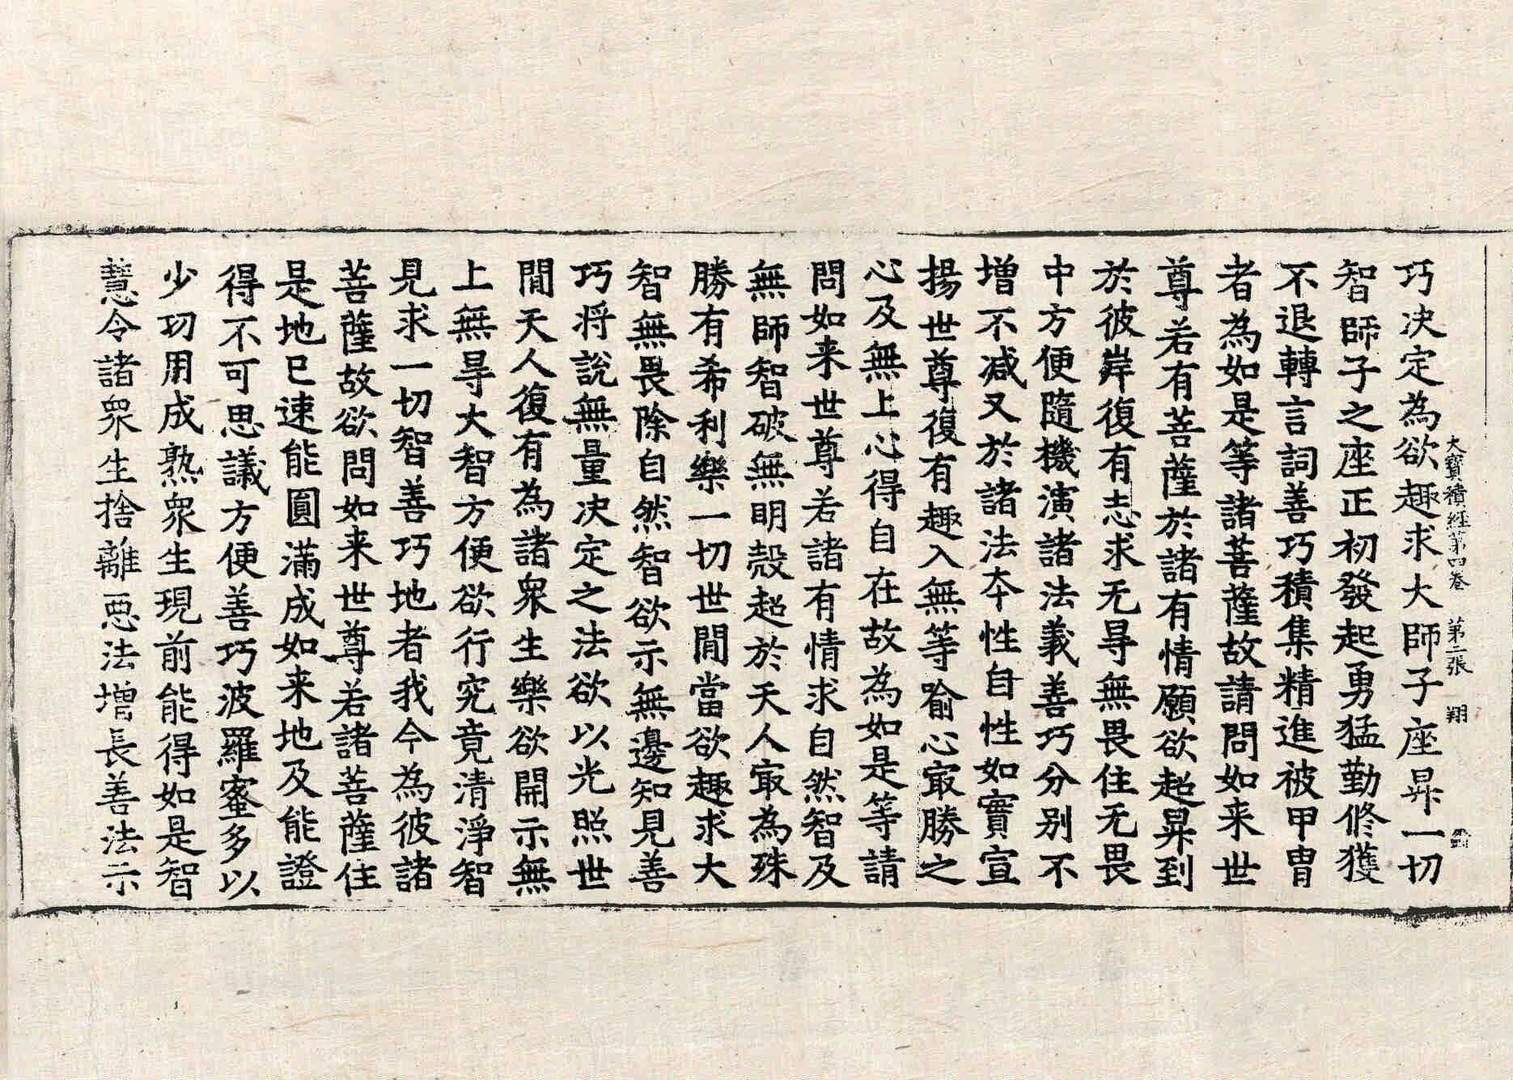 大寶積經第四卷 第二張 翔
巧决定為欲趣求大師子座昇一切
智師子之座正初發起勇猛勤修獲
不退轉言詞善巧積集精進被甲冑
者為如是等諸菩薩故請問如来世
尊若有菩薩於諸有情願欲超昇到
於彼岸復有志求无㝵無畏住无畏
中方便隨機演諸法義善巧分别不
增不减又於諸法本性自性如實宣
揚世尊復有趣入無等喻心㝡勝之
心及無上心得自在故為如是等請
問如来世尊若諸有情求自然智及
無師智破無明㲉超於天人㝡為殊
勝有希利樂一切世間當欲趣求大
智無畏除自然智欲示無邊知見善
巧将說無量决定之法欲以光照世
間天人復有為諸衆生樂欲開示無
上無㝵大智方便欲行究竟清淨智
見求一切智善巧地者我今為彼諸
菩薩故欲問如来世尊若諸菩薩住
是地已速能圓滿成如来地及能證
得不可思議方便善巧波羅蜜多以
少功用成熟衆生現前能得如是智
慧令諸衆生捨離惡法增長善法示